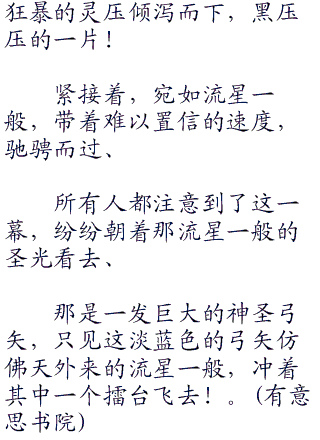 狂暴的灵压倾泻而下，黑压
压的一片！
紧接着，宛如流星一
般，带着难以置信的速度，
驰骋而过、
所有人都注意到了这一
幕，纷纷朝着那流星一般的
圣光看去、
那是一发巨大的神圣弓
矢，只见这淡蓝色的弓矢仿
佛天外来的流星一般，冲着
其中一个擂台飞去！。(有意
思书院)